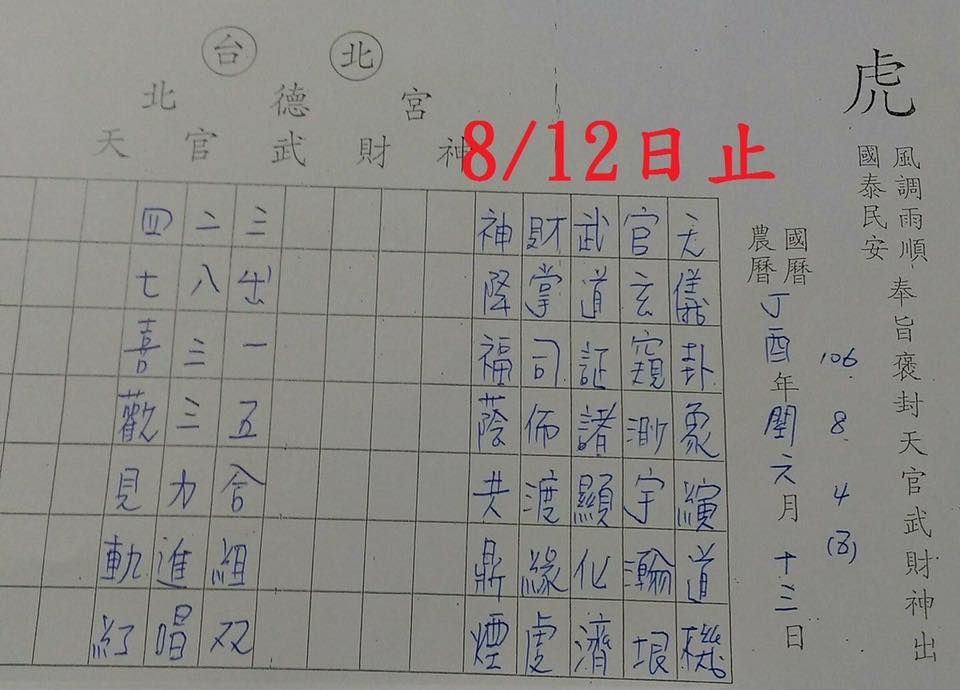 台北
北德宮
天官武財神
8/12日止
虎
風調雨順
國泰民安
奉旨褒封天官武財神出
國曆
農曆
106 8 4 (五)
丁酉年閏六月十三日
天儀卦象演道機
官玄窺測宇瀚垠
武道証諸顯化濟
財掌司佈渡緣虔
神降福蔭共鼎煙
三出一五合組双
二八三三力進唱
四七喜歡見軌紅